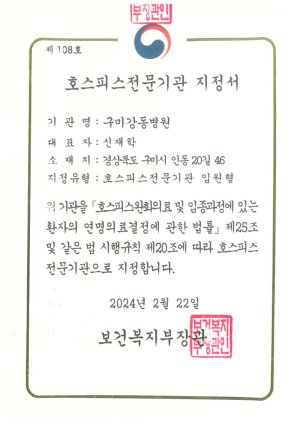 부장관인
제 108호
호스피스전문기관 지정서
기 관 명 : 구미강동병원
대 표 자 : 신재학
소 재 지 : 경상북도 구미시 인동20길 46
지정유형 : 호스피스전문기관 입원형
위 기관을 「호스피스완화의료 및 임종과정에 있는
환자의 연명의료결정에 관한 법률」 제25조
및 같은 법 시행규칙 제20조에 따라 호스피스
전문기관으로 지정합니다.
2024년 2월 22일
보건복지부장관
보건복지
부장관인